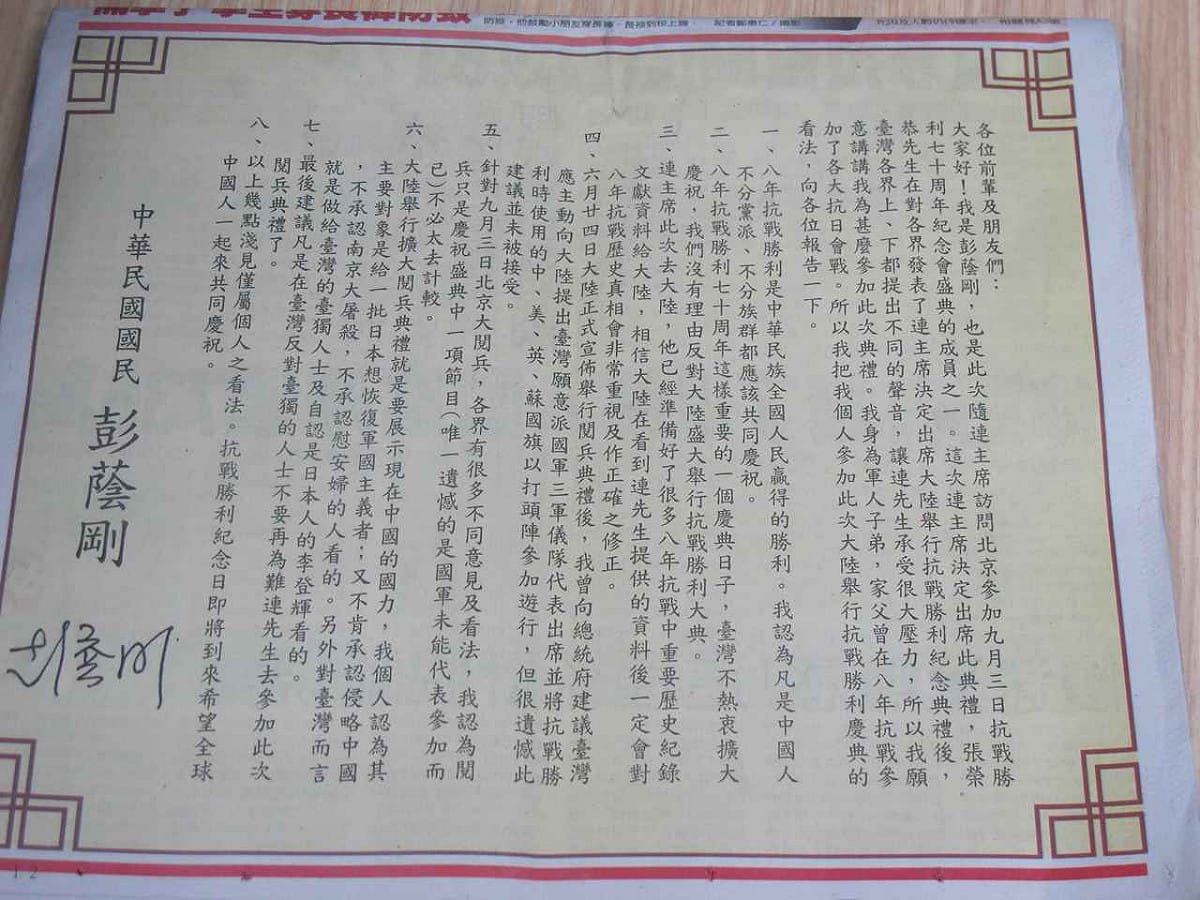 防疫，他鼓勵小朋友穿長褲、長袖到校上課。
各位前輩及朋友們：
大家好！我是彭蔭剛，也是此次隨連主席訪問北京參加九月三日抗戰勝
利七十周年紀念會盛典的成員之一。這次連主席決定出席此典禮，張榮
恭先生在對各界發表了連主席決定出席大陸舉行抗戰勝利紀念典禮後，
臺灣各界上、下都提出不同的聲音，讓連先生承受很大壓力，所以我願
意講講我為甚麼參加此次典禮。我身為軍人子弟，家父曾在八年抗戰參
加了各大抗日會戰。所以我把我個人參加此次大陸舉行抗戰勝利慶典的
看法，向各位報告一下。
一、八年抗戰勝利是中華民族全國人民贏得的勝利。我認為凡是中國人
不分黨派、不分族群都應該共同慶祝。
二、八年抗戰勝利七十周年這樣重要的一個慶典日子，臺灣不熱衷擴大
慶祝，我們沒有理由反對大陸盛大舉行抗戰勝利大典。
三、連主席此次去大陸，他已經準備好了很多八年抗戰中重要歷史紀錄
文獻資料給大陸，相信大陸在看到連先生提供的資料後一定會對
八年抗戰歷史真相會非常重視及作正確之修正。
四、六月廿四日大陸正式宣佈舉行閱兵典禮後，我曾向總統府建議臺灣
應主動向大陸提出臺灣願意派國軍三軍儀隊代表出席並將抗戰勝
利時使用的中、美、英、蘇國旗以打頭陣參加遊行，但很遺憾此
建議並未被接受。
五、針對九月三日北京大閱兵，各界有很多不同意見及看法，我認為閱
兵只是慶祝盛典中一項節目(唯一遺憾的是國軍未能代表參加而
已)不必太去計較。
六、大陸舉行擴大閱兵典禮就是要展示現在中國的國力，我個人認為其
主要對象是給一批日本想恢復軍國主義者；又不肯承認侵略中國
，不承認南京大屠殺，不承認慰安婦的人看的。另外對臺灣而言
就是做給臺灣的臺獨人士及自認是日本人的李登輝看的。
七、最後建議凡是在臺灣反對臺獨的人士不要再為難連先生去參加此次
閱兵典禮了。
八、以上幾點淺見僅屬個人之看法。抗戰勝利紀念日即將到來希望全球
中國人一起來共同慶祝。
中華民國國民 彭蔭剛
彭蔭剛